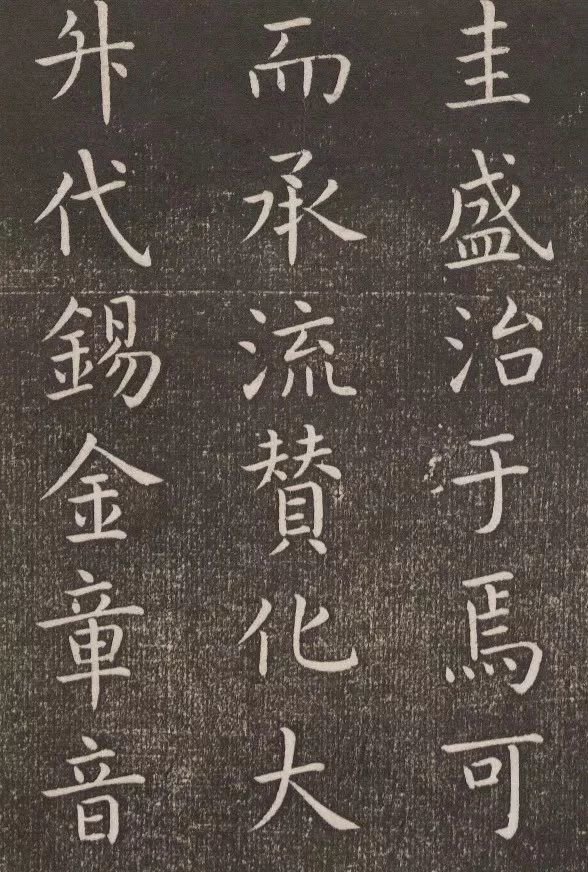 圭盛治于焉可
而承流賛化大
升代錫金章音